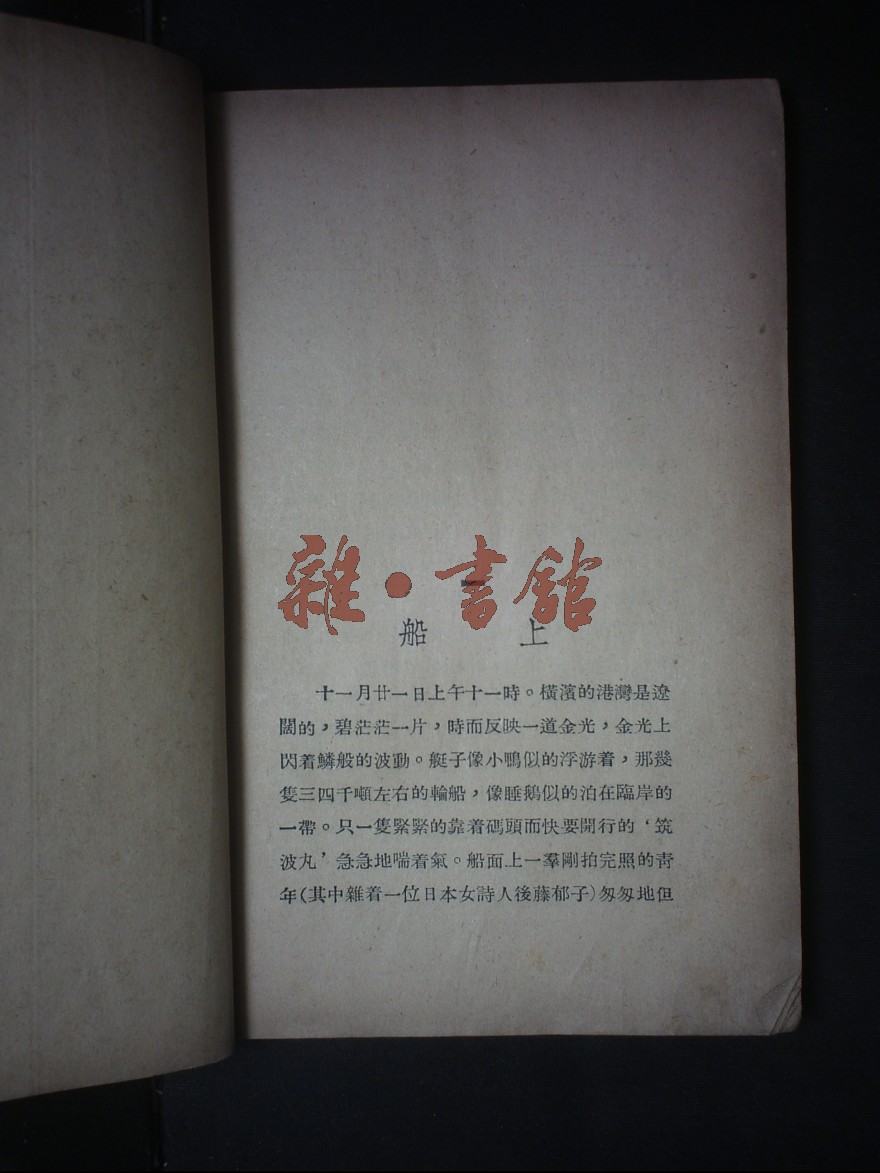 一
雜·書館
船　　上
十一月廿一日上午十一時。橫濱的港灣是遼
闊的，碧茫茫一片，時而反映一道金光，金光上
閃着鱗般的波動。艇子像小鴨似的浮游着，那幾
隻三四千噸左右的輪船，像睡鵝似的泊在臨岸的
一帶。只一隻緊緊的靠着碼頭而快要開行的‘筑
波丸’急急地喘着氣。船面上一羣剛拍完照的靑
年(其中雜着一位日本女詩人後藤郁子)匆匆地但